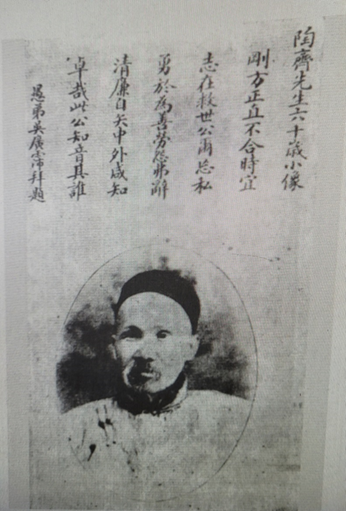 陶齊先生六十歲小像
剛方正直不合時宜
志在救世公爾忘私
勇於為善勞怨弗辭
清廉自矢中外咸知
卓哉此公知音其誰
愚弟吳廣霈拜題